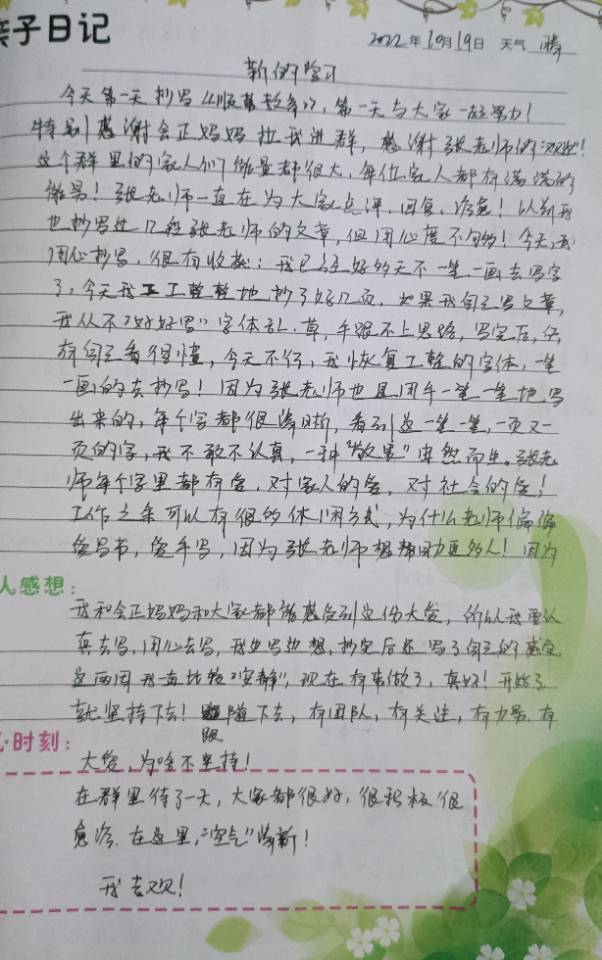 亲子日记
2022年10月19日 天气 晴
新的学习
今天第一天抄写《顺着教育》，第一天与大家一起努力！
特别感谢会正妈妈拉我进群，感谢张老师的欢迎！
这个群里的家人们能量都很大，每位家人都有满满的
能量！张老师一直在为大家点评，回复，疗愈！以前我
也抄写过几段张老师的文章，但用心度不够！今天，我
用心抄写，很有收获：我已经好多天不一笔一画去写字
了，今天我工工整整地抄了好几页，如果我自己写文章，
我从不"好好写"字体乱，草，手跟不上思路，写完后，只
有自己看得懂，今天不行，我恢复工整的字体，一笔
一画的去抄写！因为张老师也是用手一笔一笔地写
出来的，每个字都很清晰，看到这一笔一笔，一页又一
页的字，我不敢不认真，一种"敬畏"突然而生。张老
师每个字里都有爱，对家人的爱，对社会的爱！
工作之余可以有很多休闲方式，为什么老师偏偏
爱写书，爱手写，因为张老师想帮助更多的人！因为
人感想：
我和会正妈妈和大家都能感受到这份大爱，所以我要认
真去写，用心去写，我边写边想，抄完后还写了自己的感受
这两周我一直比较"安静"，现在有事做了，真好！开始了
就坚持下去！跟随下去，有团队，有关注，有力量，有
心·时刻：
大爱，为啥不坚持！
在群里待了一天，大家都很好，很积极很
愈疗，在这里，"空气"清新！
我喜欢！